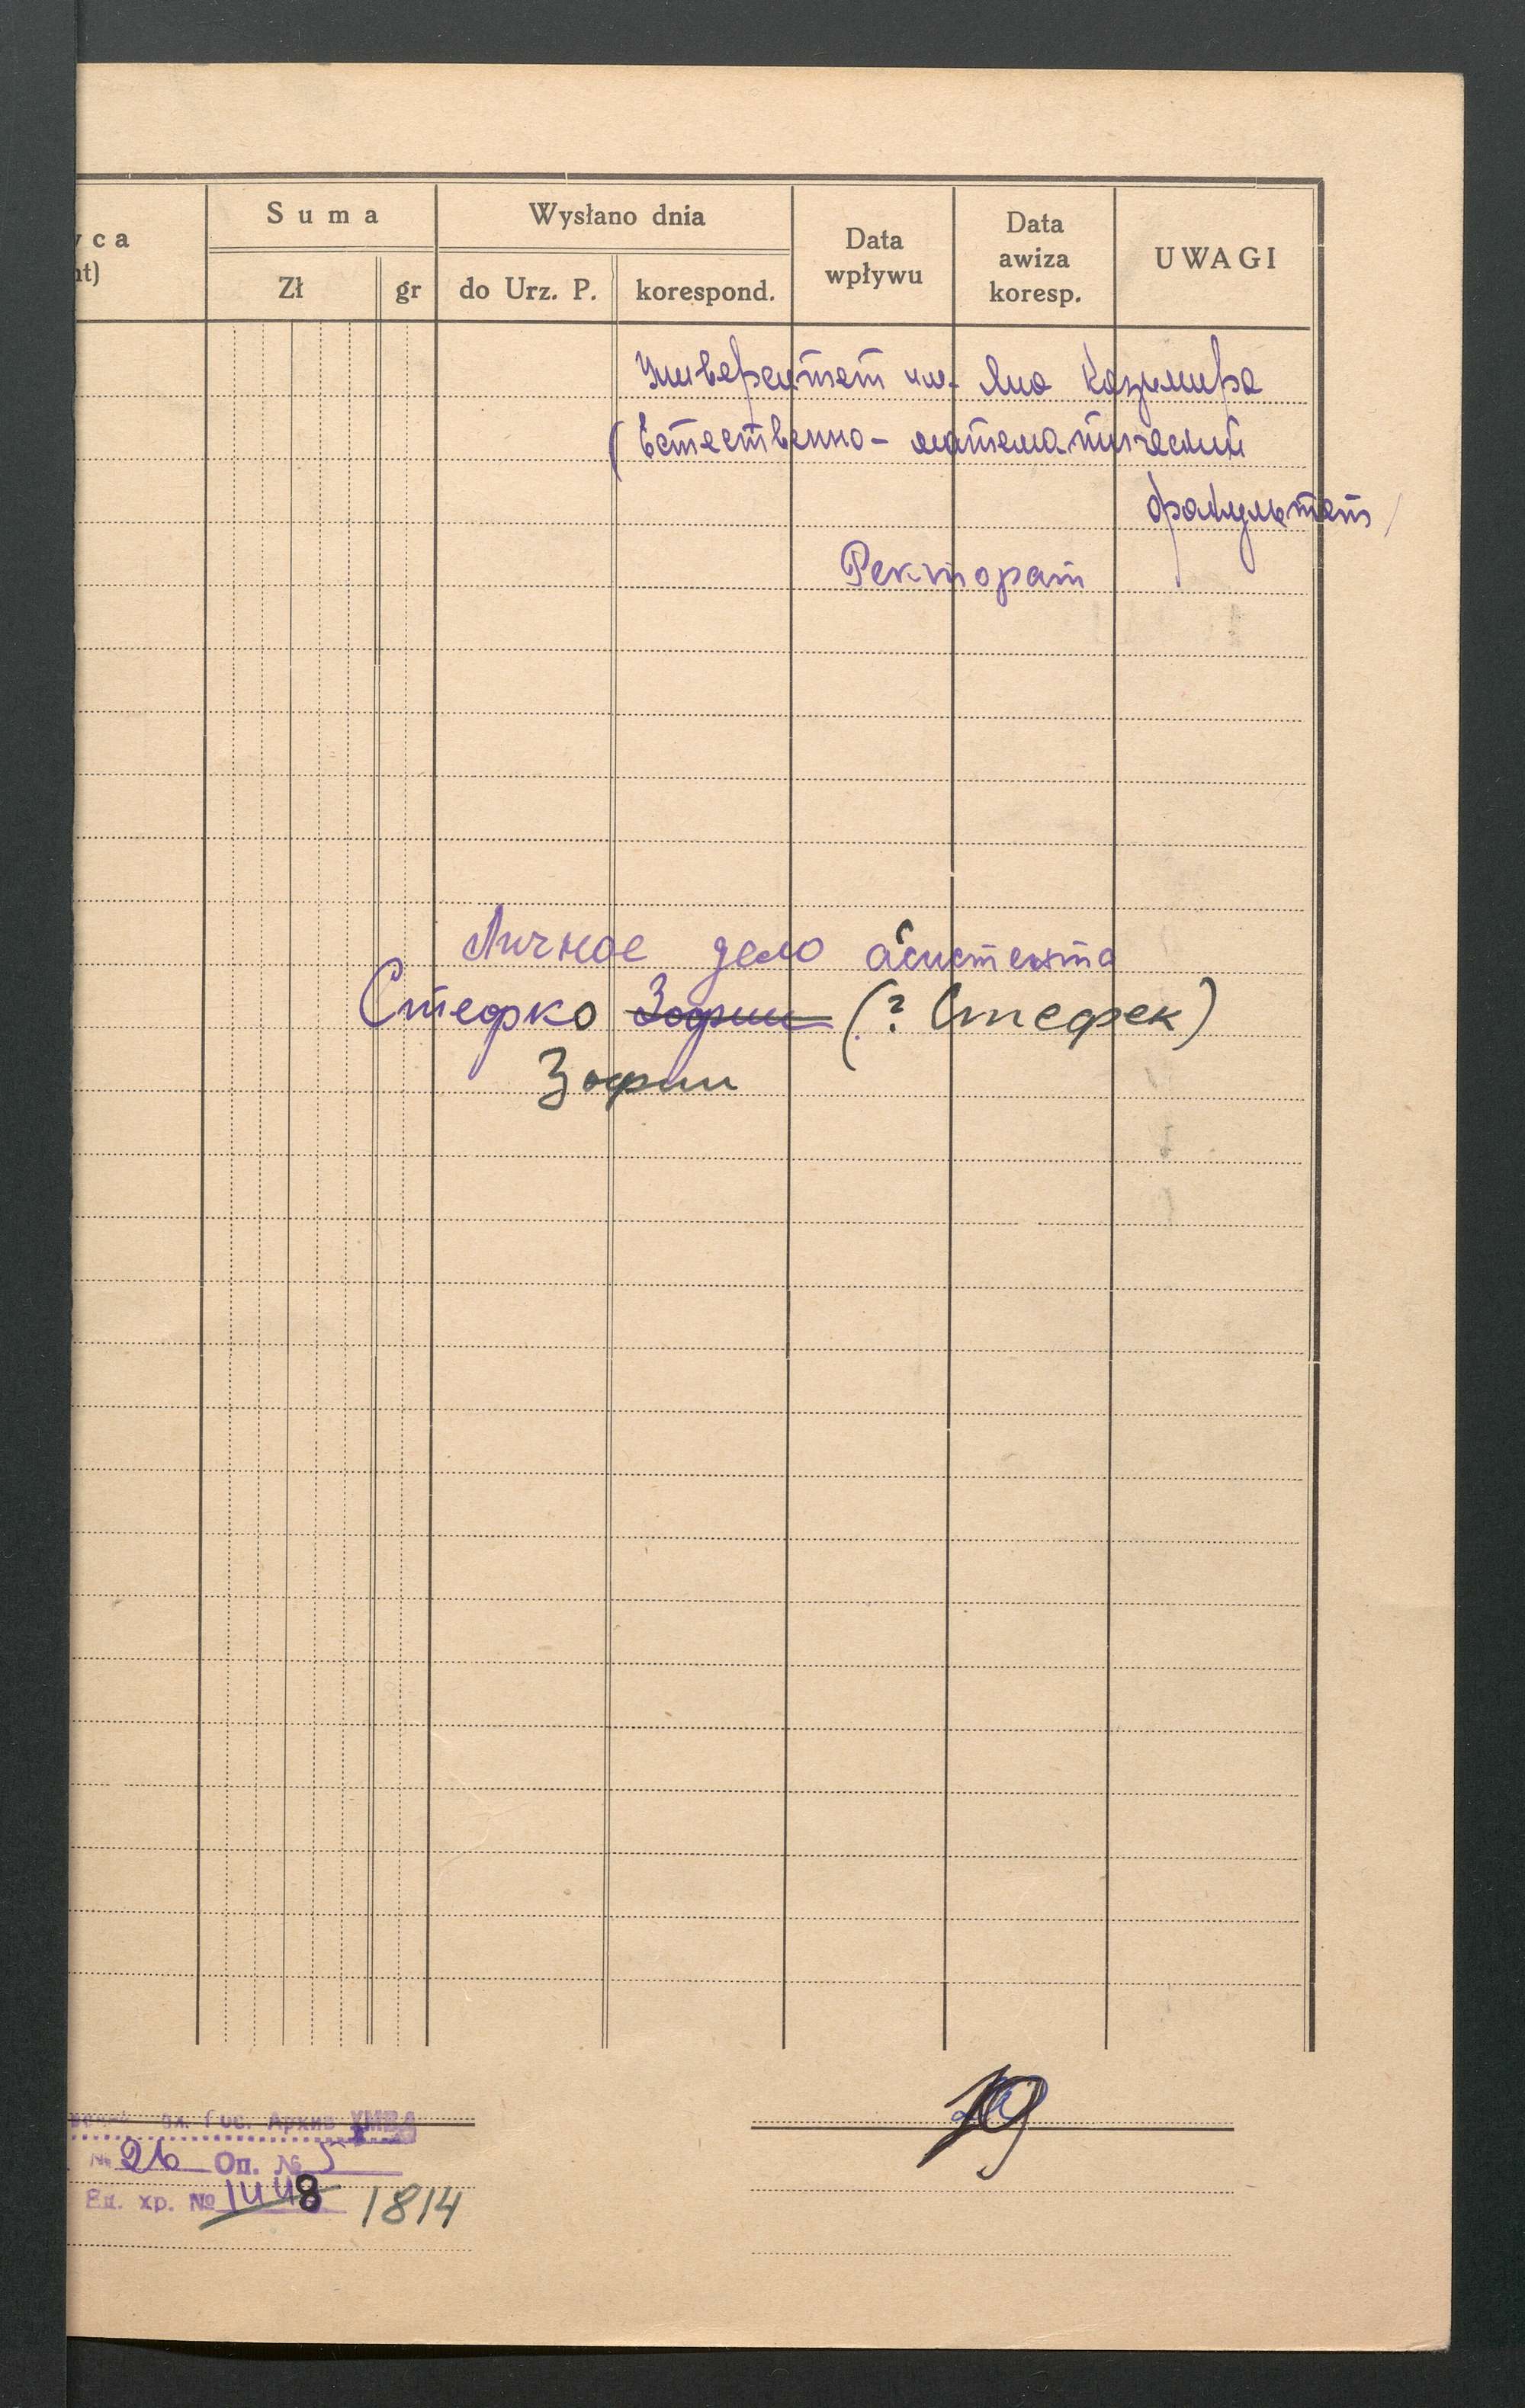 yca
nt)
Suma
Zł
gr
Wysłano dnia
do Urz. P.
korespond.
Data
wpływu
Data
awiza
koresp.
UWAGI
Университет им. Яна Казимира
(Естественно-математический
факультет
Ректорат
Личное дело ассистента
Стефко Зофии (? Стефек)
Зофии
обл. Гос. Архив УМВД
№ 26 Оп. № 5
Ед. хр. № 1448 1814